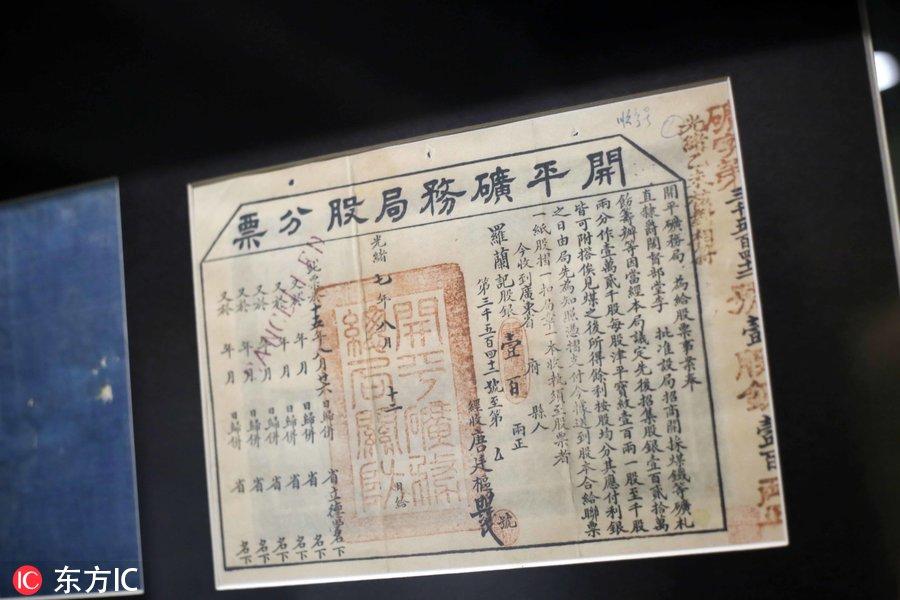 開平礦務局股分票
開平礦務局 為給股票事案奉
直隸爵閣督部堂李 批准設局招商開採煤鐵等礦札
飭籌辦等因當經本局議定先後招集股銀壹百貳拾萬
兩分作壹萬貳千股每股津平寶銀壹百兩一股至千股
皆可附搭俟見煤之後所得餘利按股均分其應付利銀
之日由局先為知照憑摺支付今據送到股本合給聯票
一紙股摺一扣局章一本收執須至股票者
今收到廣東省 府 縣人
羅蘭記股銀壹百 兩正
第三千五百四十二號至第 號
經收唐廷樞
光緒七年八月十二日給
CANCELLEN
十五年八月廿六日歸併 省立德堂名下
又於 年 月 日歸併 省 名下
又於 年 月 日歸併 省 名下
又於 年 月 日歸併 省 名下
又於 年 月 日歸併 省 名下
開平礦務
總局關防
東方IC